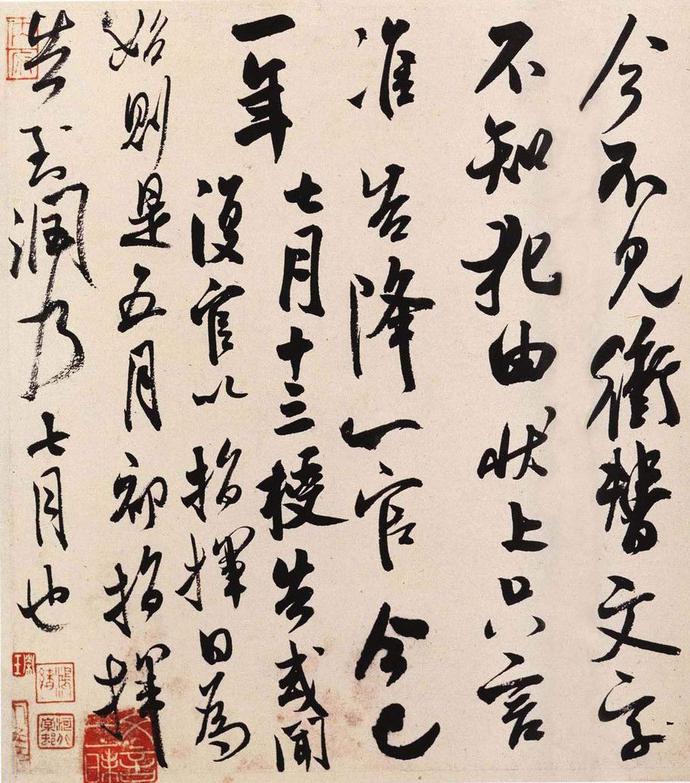 今不見衝替文字
不知犯由狀上只言
准 告降一官今已
一年
七月十三授告或聞
復官以指揮日為
始則是五月初指揮
告至潤乃七月也